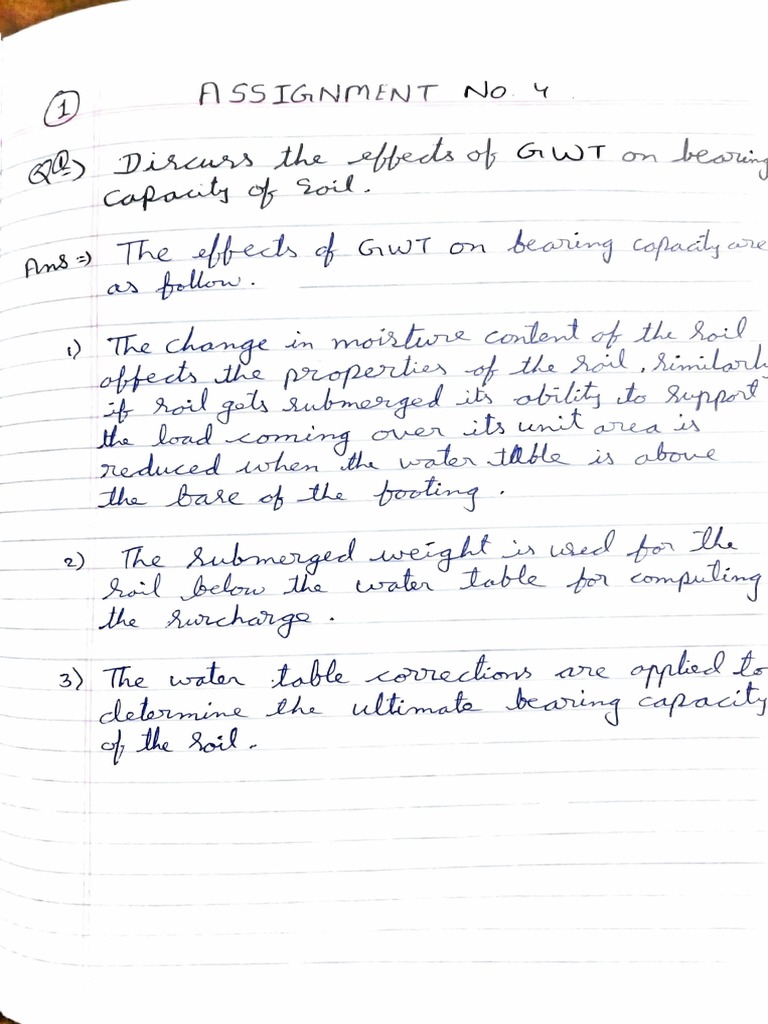 1
ASSIGNMENT No. 4
Q1) Discuss the effects of GWT on bearing
capacity of soil.
Ans => The effects of GWT on bearing capacity are
as follow.
1) The change in moisture content of the soil
affects the properties of the soil, similarl
if soil gets submerged its ability to support
the load coming over its unit area is
reduced when the water table is above
the base of the footing.
2) The submerged weight is used for the
soil below the water table for computing
the surcharge.
3) The water table corrections are applied to
determine the ultimate bearing capacity
of the soil.